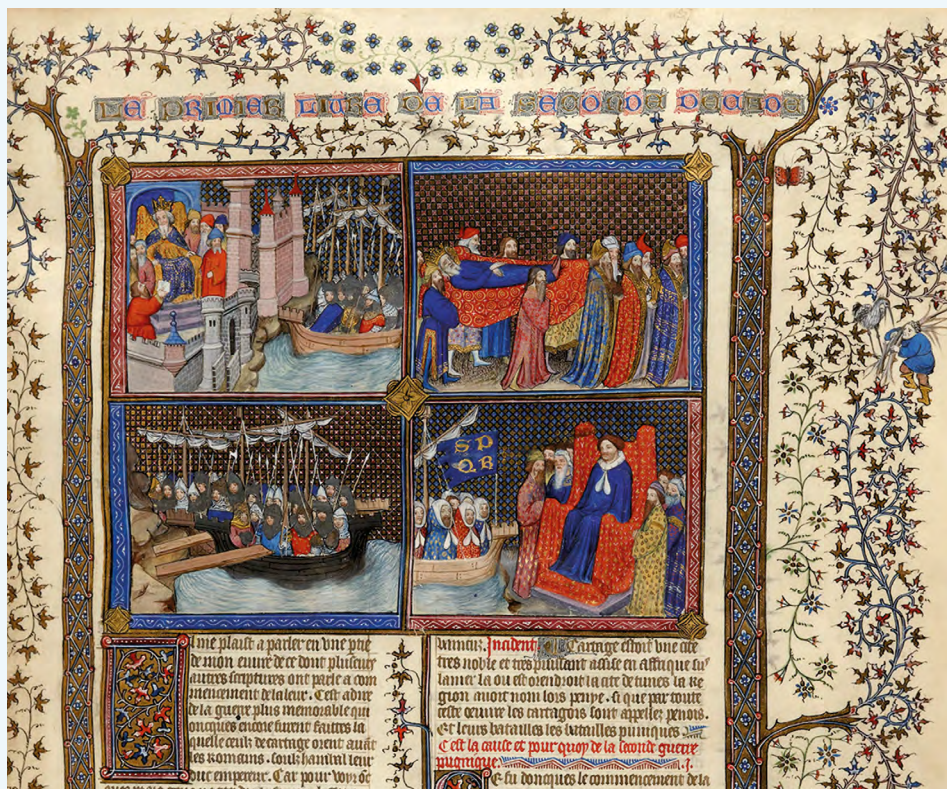 LE PRIMIER LIURE DE LA SECONDE DECADE
S P
Q R
l me plaist a parler en vne ptie
de mon euure de ce dont pluseurs
autres escriptures ont parle a com
mencement de la leur. Cest a dire
de la guerre plus memorable qui
oncques encore furent faittes la
quelle ceulz de cartage orent auāt
les Rommains. soulz hanibal leur
duc empereur. Car pour voir
banneur. Incident Cartage estoit vne cite
tres noble et tres puissant assise en affrique sur
la mer la ou est orendroit la cite de tunes la re
gion auoit nom lors penye. si que par toute
ceste oeuure les cartagois sont appellez penois
Et leurs batailles les batailles puniques
C est la cause et pour quoy de la seconde guerre
pugnique. .j.
E fu doncques le commencement de la